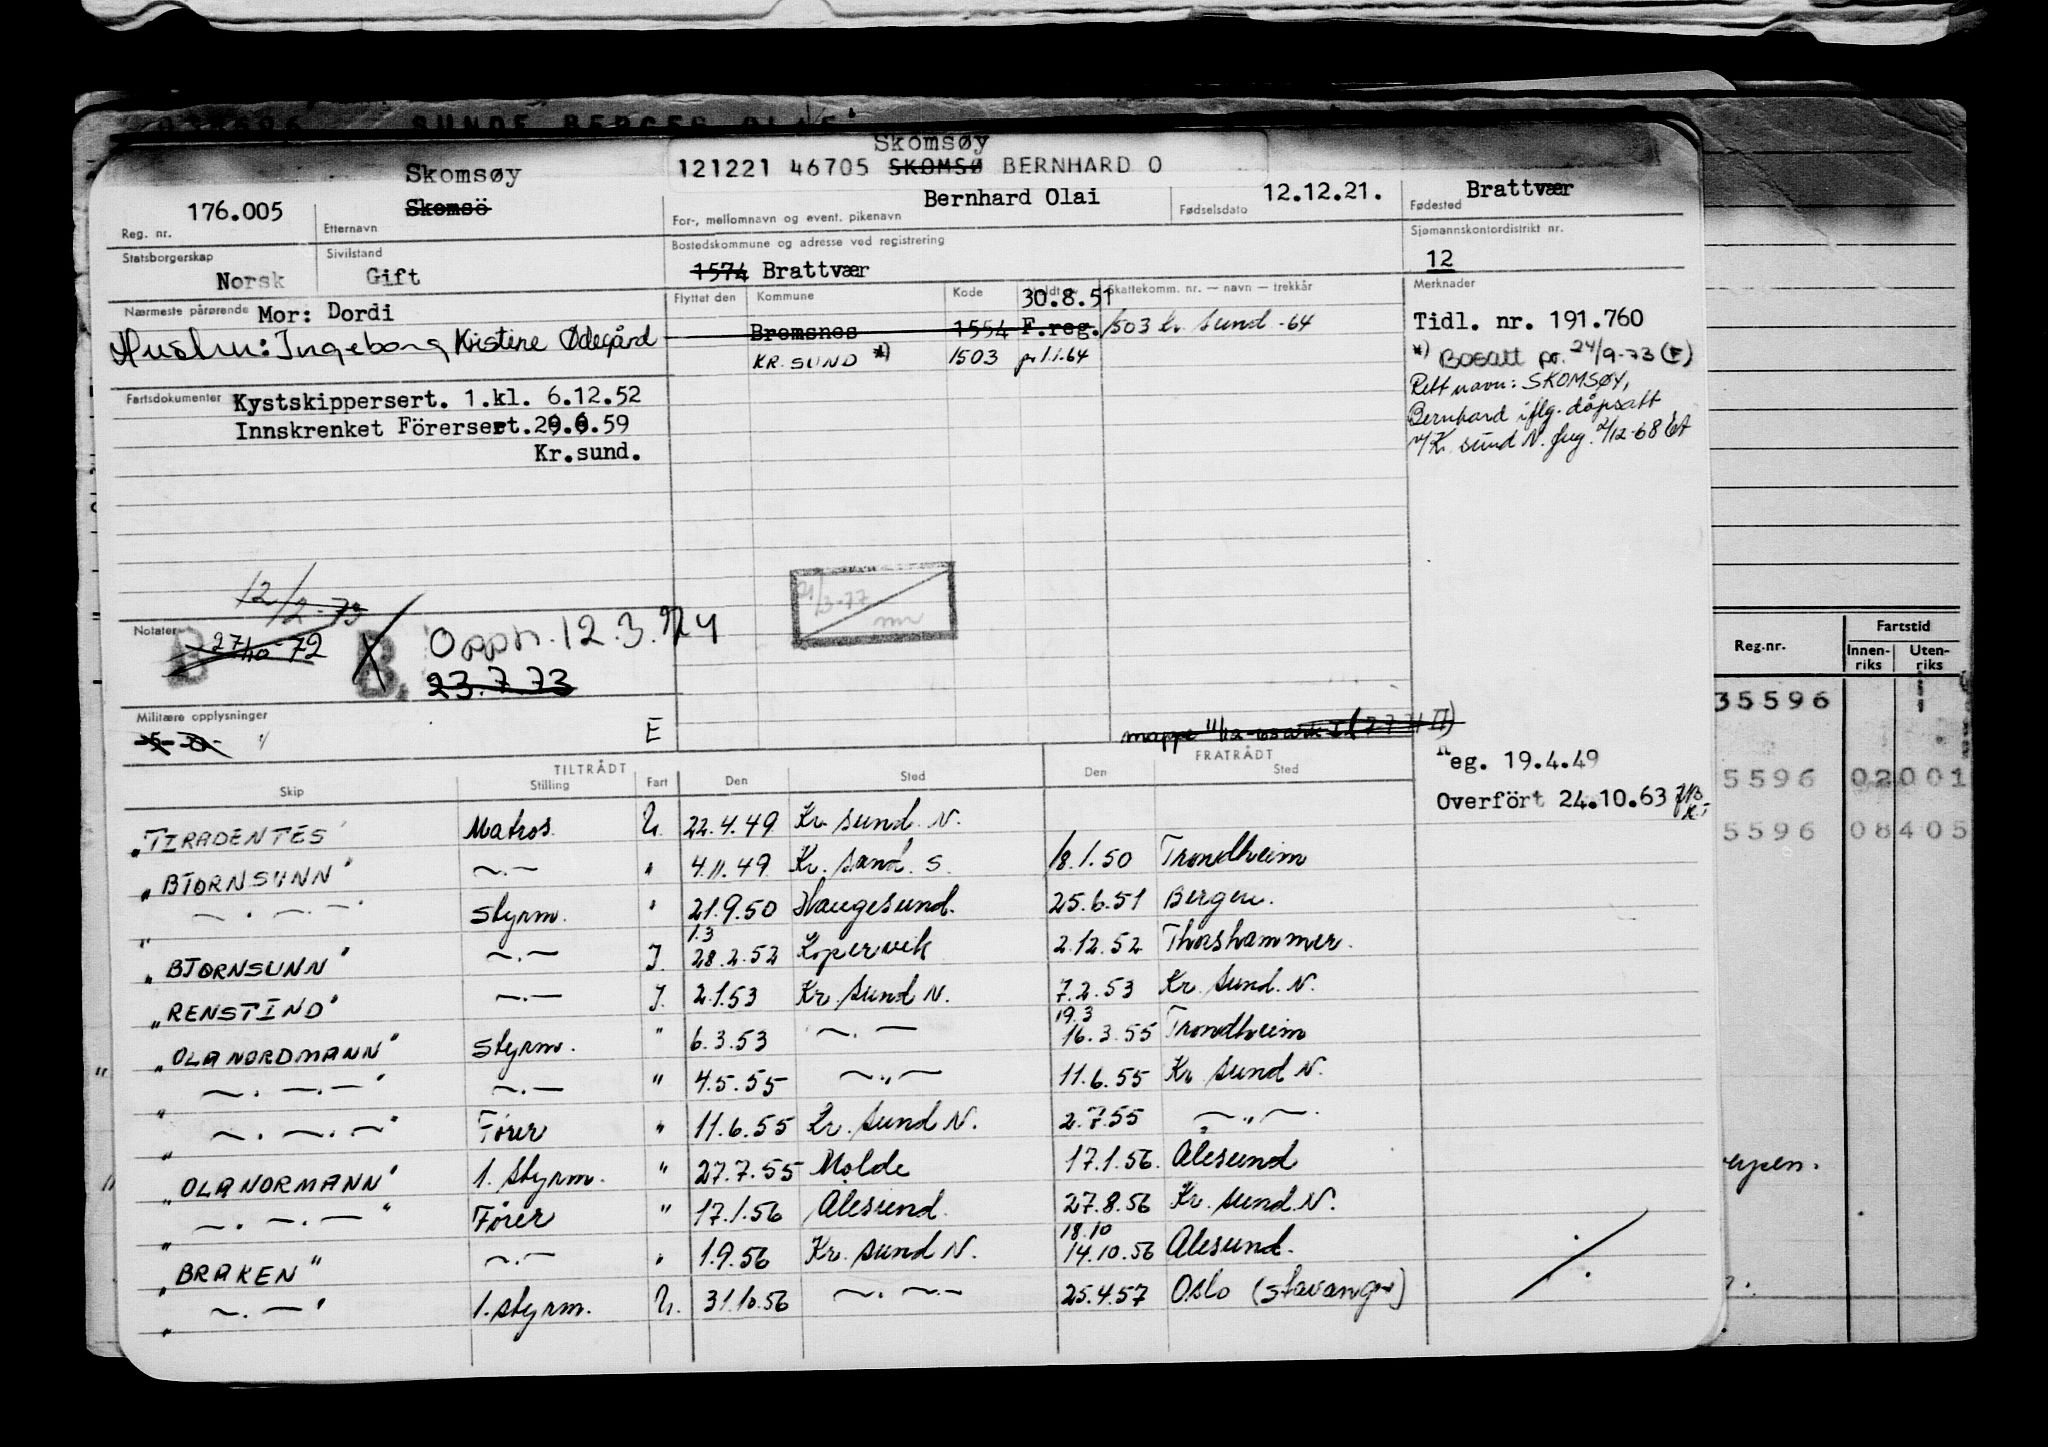 SUNDE BERGER OLAF
Skomsøy
121221 46705 SKOMSØ BERNHARD O
Skomsøy
176.005 Skomsö Bernhard Olai 12.12.21. Brattvær
Reg. nr. Etternavn For-, mellomnavn og event. pikenavn Fødselsdato Fødested
Statsborgerskap Sivilstand Bostedskommune og adresse ved registrering Sjømannskontordistrikt nr.
Norsk Gift 1574 Brattvær 12
Nærmeste pårørende Mor: Dordi
Hustru: Ingeborg Kristine Ødegård
Flyttet den Kommune Kode Meldt Skattekomm. nr. — navn — trekkår
30.8.51
Bremsnes 1554 F.reg. 1503 Kr. sund -64
KR. SUND *) 1503 pr 1.1.64
Merknader
Tidl. nr. 191.760
*) Bosatt pr. 24/9-73 (F)
Rett navn: SKOMSØY,
Bernhard iflg. dåpsatt
v/Kr. sund N. 2/12-68
Fartsdokumenter Kystskippersert. 1.kl. 6.12.52
Innskrenket Förersert. 29.6.59
Kr.sund.
12/2-73
Notater
B 27/10 72 B. Oppn. 12.3.74
23.7.73
21/3-77
Militære opplysninger
E
mappe
Reg. 19.4.49
Overfört 24.10.63
TILTRÅDT FRATRÅDT
Skip Stilling Fart Den Sted Den Sted
"TIRADENTES" Matros U. 22.4.49 Kr. sund. N.
"BJØRNSUNN" —.— " 4.11.49 Kr. sand. S. 18.1.50 Trondheim
" —.—.— " Styrm. " 21.9.50 Haugesund. 25.6.51 Bergen.
1.3
"BJØRNSUNN" —.— J. 28.2.52 Kopervik 2.12.52 Thorshammer.
"RENSTIND" —.— J. 2.1.53 Kr. sund N. 7.2.53 Kr. sund. N.
19.3
"OLA NORDMANN" Styrm. " 6.3.53 —.— 16.3.55 Trondheim
" —.—.— " —.— " 4.5.55 —„— 11.6.55 Kr. sund N.
" —.—.— " Fører " 11.6.55 Kr. sund N. 2.7.55 —„—.
"OLA NORMANN" 1. styrm. " 27.7.55 Molde 17.1.56. Ålesund
" —.—.— " Fører " 17.1.56 Ålesund. 27.8.56 Kr. sund. N.
18.10
"BRAKEN" —.— " 1.9.56 Kr. sund N. 14.10.56 Ålesund.
" —.— " 1. styrm. U. 31.10.56 —.—.— 25.4.57 Oslo (Stavanger)
Reg.nr. Fartstid
Innen-riks Uten-riks
35596
5596 02001
5596 08405